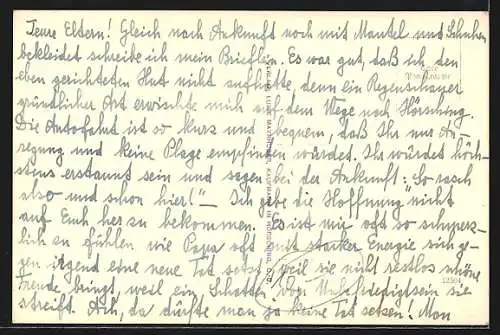 Teure Eltern! Gleich nach Ankunft noch mit Mantel und Schuhen
bekleidet schreibe ich mein Brieflein. Es war gut, daß ich den
eben gerichteten Hut nicht aufhatte, denn ein Regenschauer
gründlicher Art erwischte mich auf dem Wege nach Hörsching.
Die Autofahrt ist so kurz und bequem, daß Ihr nur An-
regung und keine Plage empfinden würdet. Ihr würdet höch-
stens erstaunt sein und sagen bei der Ankunft: "So rasch
also und schon hier!" – Ich gebe die Hoffnung nicht
auf Euch her zu bekommen. Es ist mir oft so schmerz-
lich zu fühlen wie Papa oft mit starker Energie sich ge-
gen irgend eine neue Tat setzt, weil sie nicht restlos schöne
Freude bringt, weil ein Schatten von Unfriedigtsein sie
streift. Ach, da dürfte man ja keine Tat setzen. Man
HÖRSCHING
12504